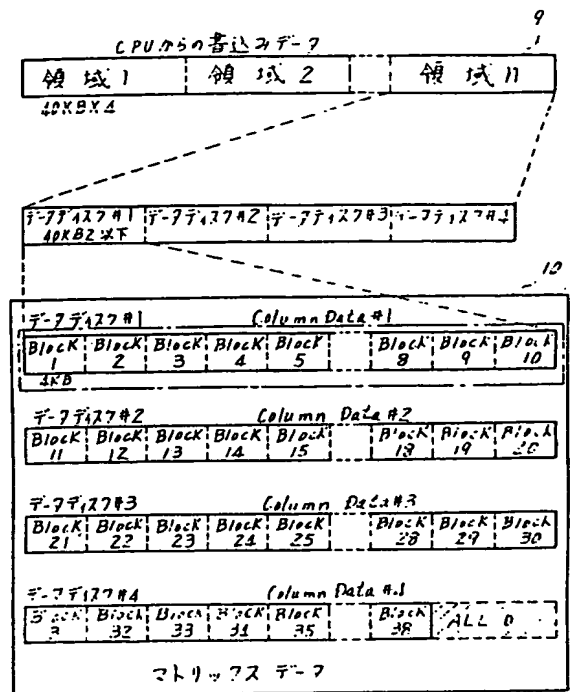 9
CPUからの書込みデータ
領域1 領域2 領域n
40KB×4
データディスク#1 データディスク#2 データディスク#3 データディスク#4
40KB以下
10
データディスク#1 Column Data#1
Block 1 Block 2 Block 3 Block 4 Block 5 Block 8 Block 9 Block 10
4KB
データディスク#2 Column Data#2
Block 11 Block 12 Block 13 Block 14 Block 15 Block 18 Block 19 Block 20
データディスク#3 Column Data#3
Block 21 Block 22 Block 23 Block 24 Block 25 Block 28 Block 29 Block 30
データディスク#4 Column Data#4
Block Block 32 Block 33 Block 34 Block 35 Block 38 ALL 0
マトリックス データ